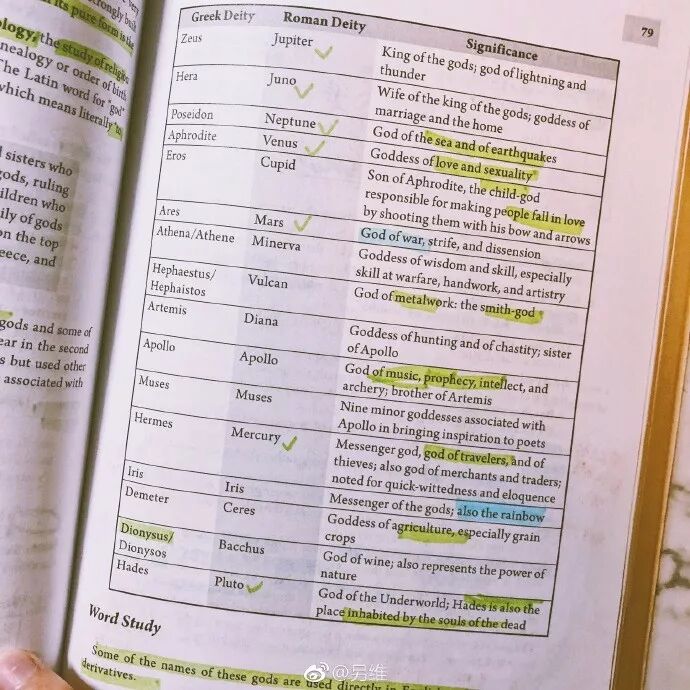 79
ology, the study of religion
nealogy or order of birth
The Latin word for "god"
which means literally
sisters who
gods, ruling
ildren who
ily of gods
on the top
eece, and
gods and some of
ear in the second
s but used other
associated with
Greek Deity Roman Deity Significance
Zeus Jupiter King of the gods; god of lightning and
thunder
Hera Juno Wife of the king of the gods; goddess of
marriage and the home
Poseidon Neptune God of the sea and of earthquakes
Aphrodite Venus Goddess of love and sexuality
Eros Cupid Son of Aphrodite, the child-god
responsible for making people fall in love
by shooting them with his bow and arrows
Ares Mars God of war, strife, and dissension
Athena/Athene Minerva Goddess of wisdom and skill, especially
skill at warfare, handwork, and artistry
Hephaestus/
Hephaistos Vulcan God of metalwork: the smith-god
Artemis Diana Goddess of hunting and of chastity; sister
of Apollo
Apollo Apollo God of music, prophecy, intellect, and
archery; brother of Artemis
Muses Muses Nine minor goddesses associated with
Apollo in bringing inspiration to poets
Hermes Mercury Messenger god, god of travelers, and of
thieves; also god of merchants and traders;
noted for quick-wittedness and eloquence
Iris Iris Messenger of the gods; also the rainbow
Demeter Ceres Goddess of agriculture, especially grain
crops
Dionysus/
Dionysos Bacchus God of wine; also represents the power of
nature
Hades Pluto God of the Underworld; Hades is also the
place inhabited by the souls of the dead
Word Study
Some of the names of these gods are used directly in
derivatives.
@另维